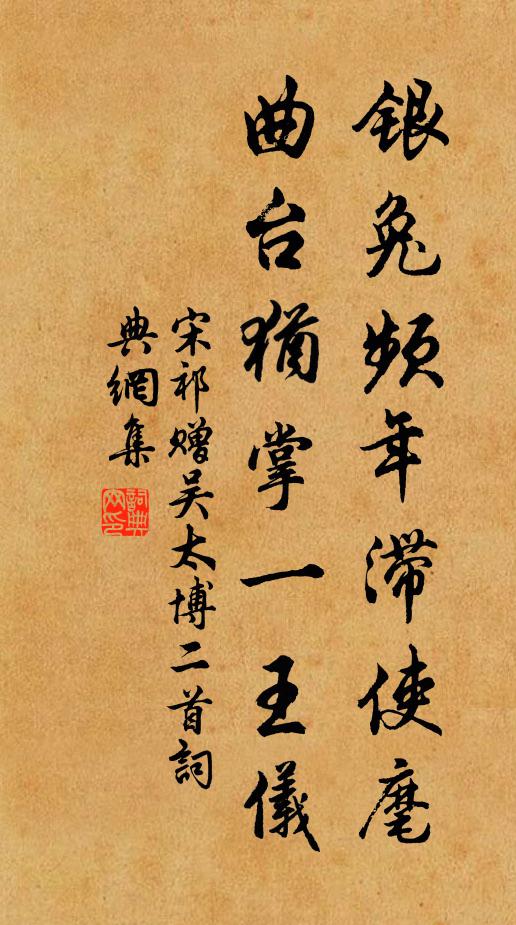 银兔频年滞使麾
曲台猶掌一王儀
宋祁赠吴太博二首詞
典網集
詞典网印